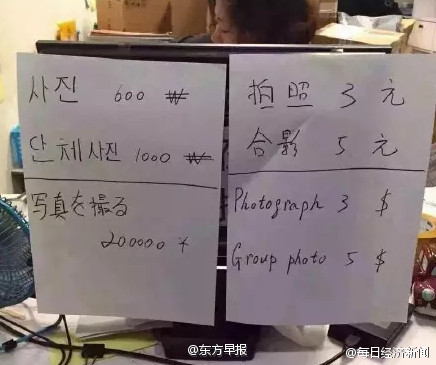 사진 600 ₩
단체사진 1000 ₩
写真を撮る
200000 ¥
拍照 3 元
合影 5 元
Photograph 3 $
Group photo 5 $
@东方早报
@每日经济新闻